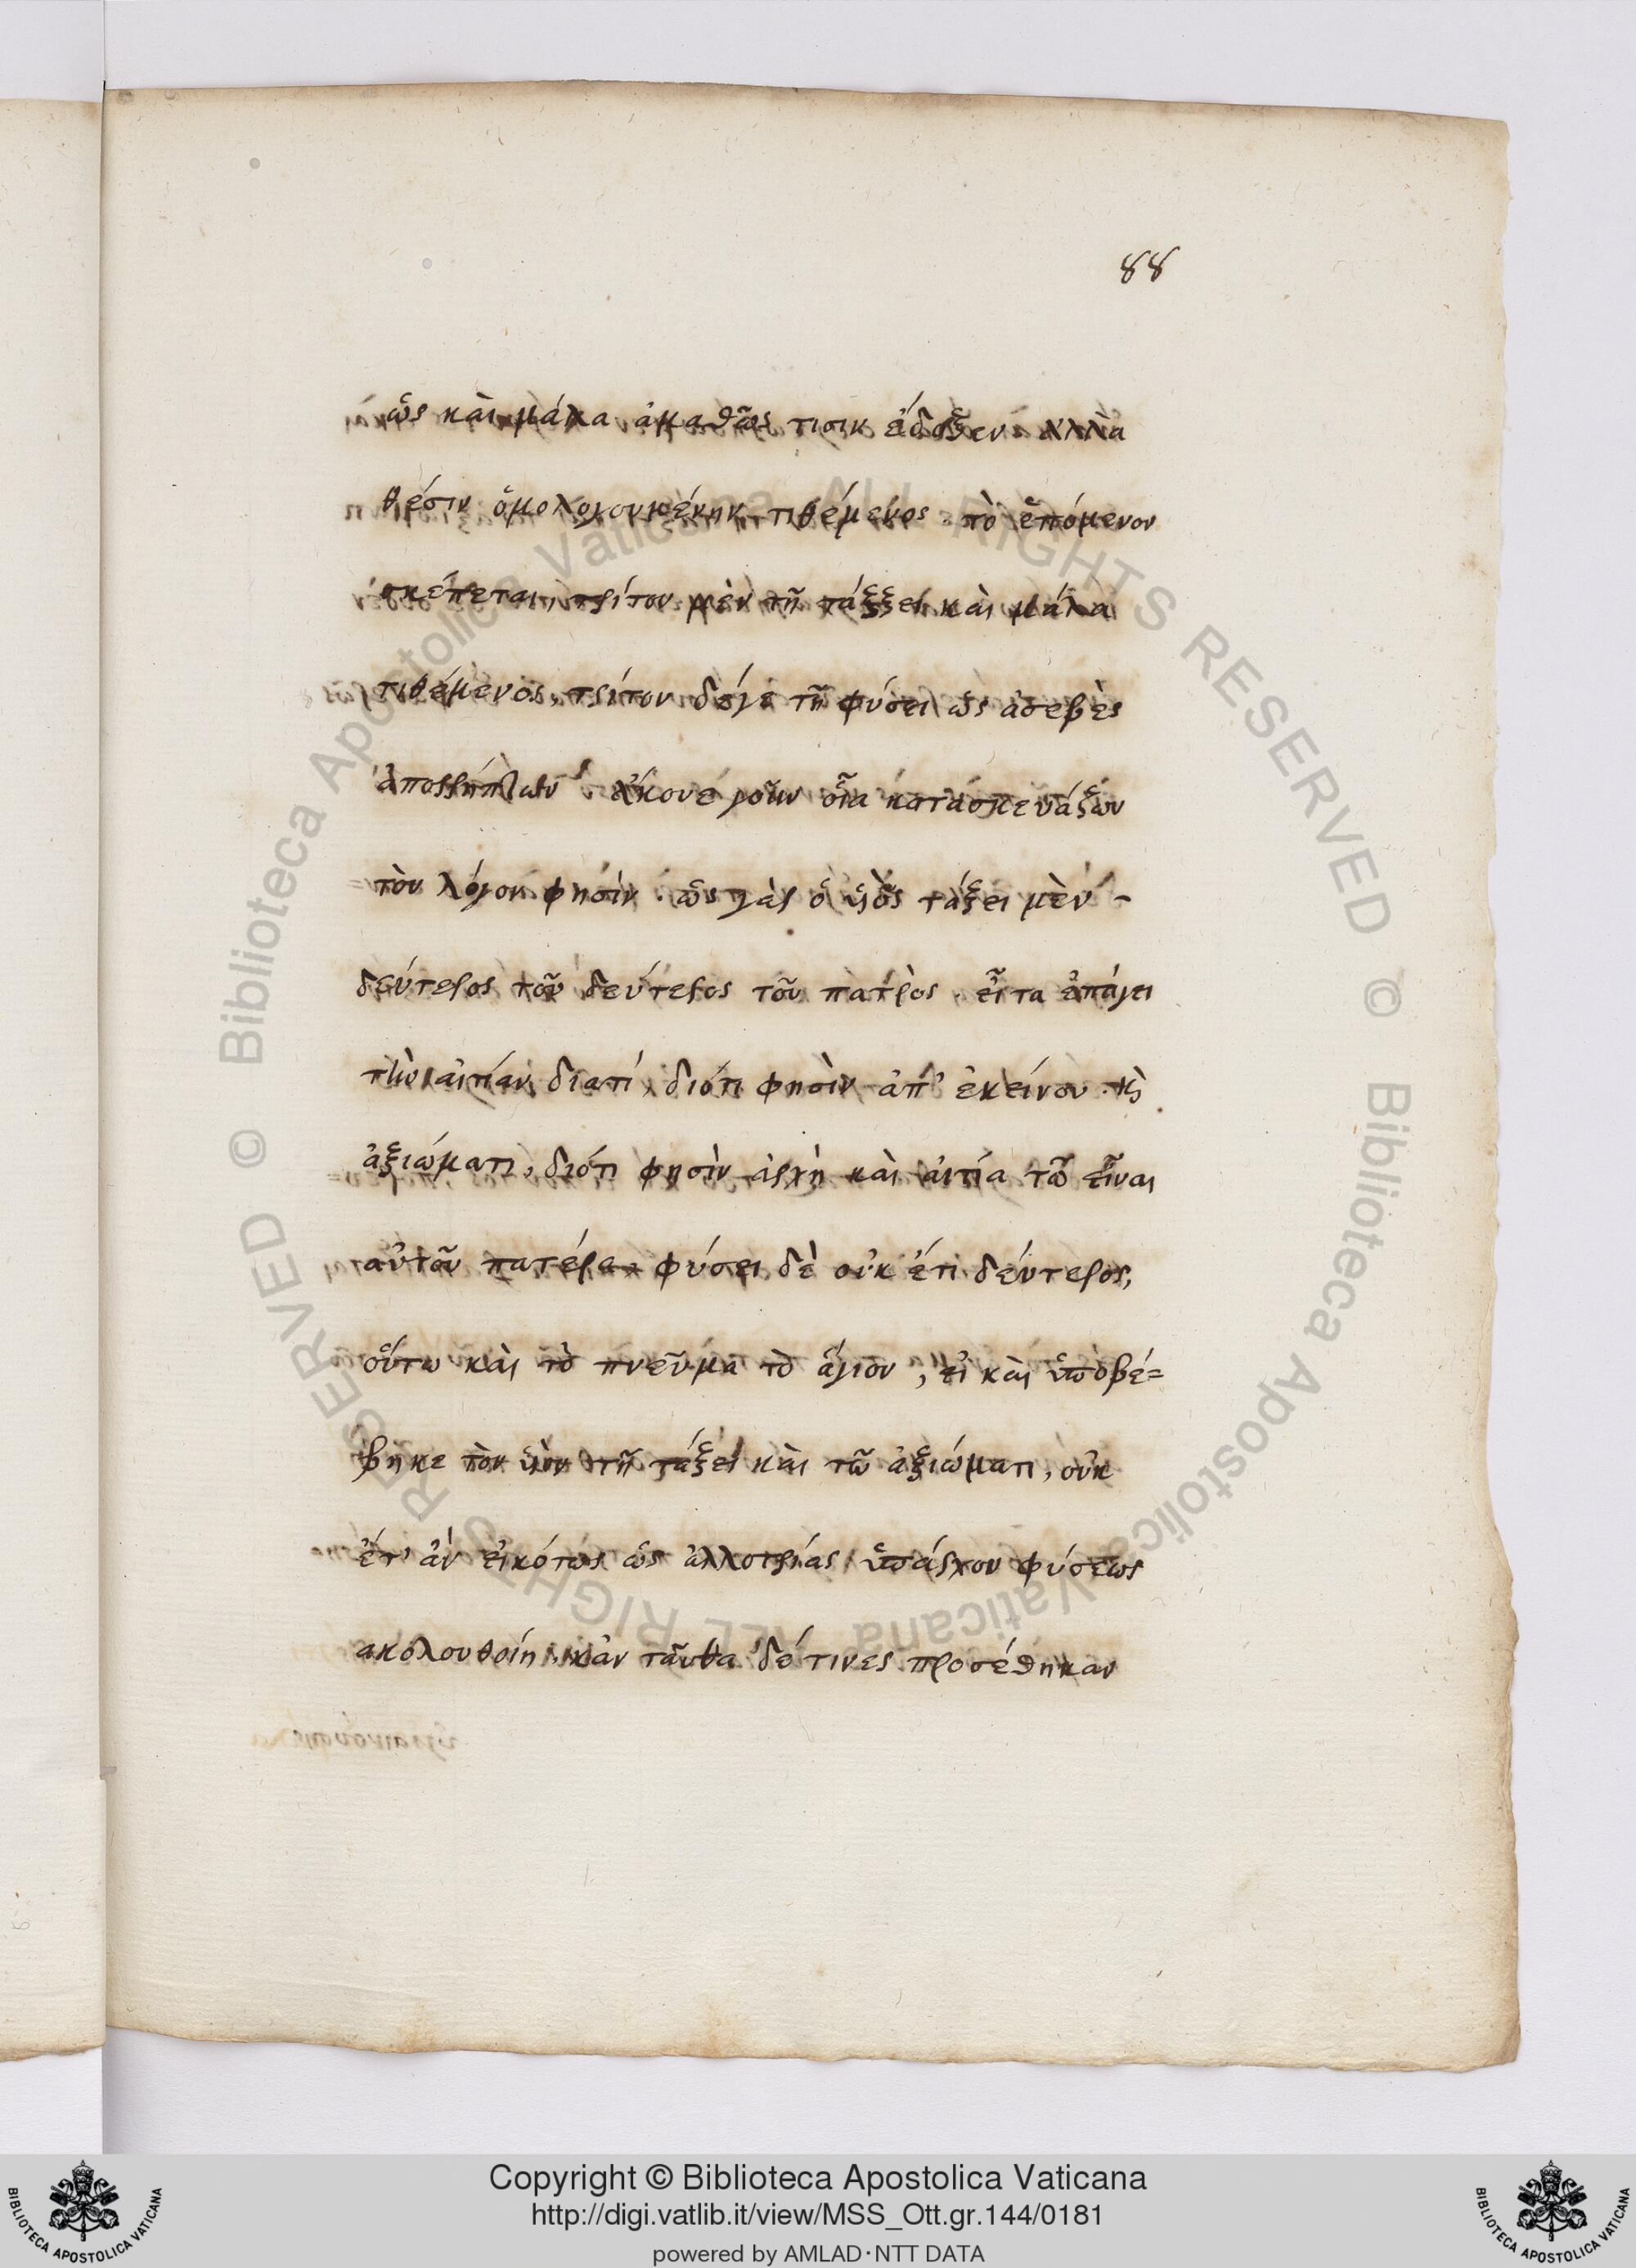 88
ὣς καὶ μάλα ἀμαθῶς τισιν ἔδοξεν ἀλλὰ
θέσιν ὁμολογουμένην τιθέμενος τὸ ἑπόμενον
σκέπεται, τρίτον μὲν τῇ τάξει καὶ μάλα
τιθέμενος, τρίτον δέγε τῇ φύσει ὡς ἀσεβὲς
ἄκουε γοῦν οἷα κατασκευάζων
τὸν λόγον φησίν ὡς γὰρ ὁ υἱὸς τάξει μὲν -
δεύτερος τοῦ δεύτερος τοῦ πατρὸς. εἶτα ἐπάγει
τὴν αἰτίαν διατί, διότι φησὶν ἀπ' ἐκείνου. κὶ
ἀξιώματι, διότι φησὶν ἀρχὴ καὶ αἰτία τῶ εἶναι
αὐτοῦ πατέρα φύσει δὲ οὐκ έτι δεύτερος,
οὕτω καὶ τὸ πνεῦμα τὸ ἅγιον, εἰ καὶ ὑποβέ=
βηκε τὸν υἱὸν τῇ τάξει καὶ τῶ ἀξιώματι, οὐκ
έτ' ἂν εἰκότως ὡς ἀλλοτρίας ὑπάρχον φύσεως
ακολουθοίη, κἂν ταῦθα δέ τινες προσέθηκαν
Copyright © Biblioteca Apostolica Vaticana
http://digi.vatlib.it/view/MSS_Ott.gr.144/0181
powered by AMLAD·NTT DATA
© Biblioteca Apostolica Vaticana ALL RIGHTS RESERVED
© Biblioteca Apostolica Vaticana ALL RIGHTS RESERVED
BIBLIOTECA APOSTOLICA VATICANA
BIBLIOTECA APOSTOLICA VATICANA